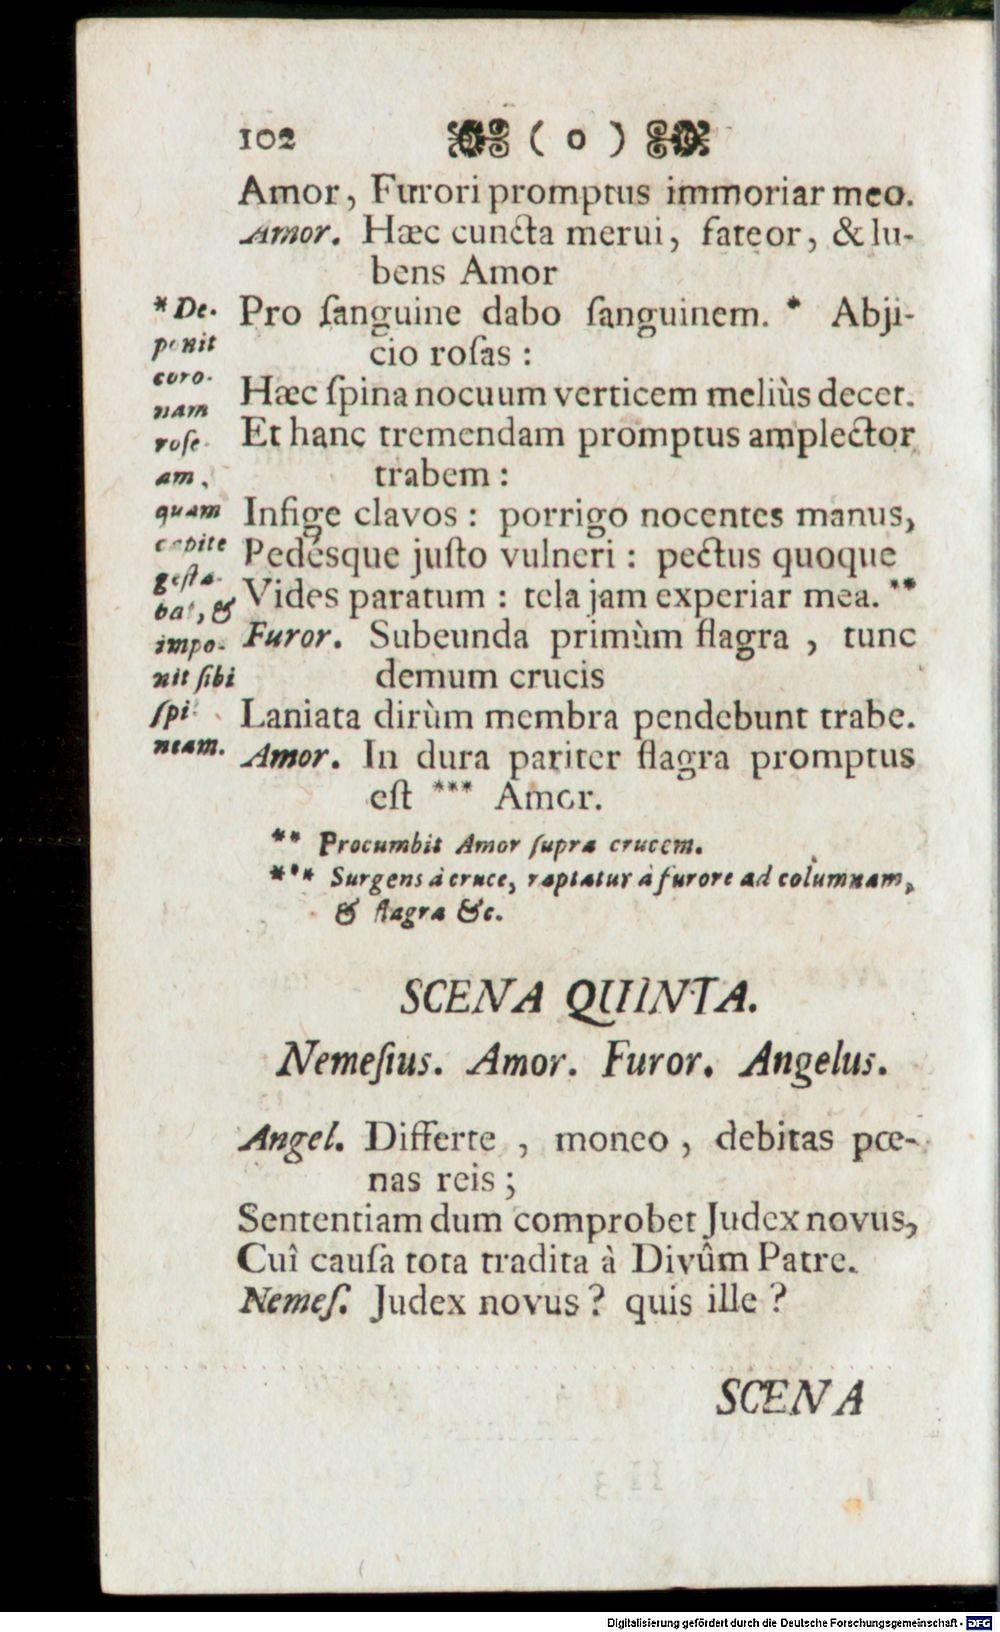 102 ( o )
Amor, Furori promptus immoriar meo.
Amor. Hæc cuncta merui, fateor, & lu-
bens Amor
Pro ſanguine dabo ſanguinem. * Abji-
cio roſas :
Hæc ſpina nocuum verticem meliùs decet.
Et hanc tremendam promptus amplector
trabem :
Infige clavos : porrigo nocentes manus,
Pedésque juſto vulneri : pectus quoque
Vides paratum : tela jam experiar mea. **
Furor. Subeunda primùm flagra , tunc
demum crucis
Laniata dirùm membra pendebunt trabe.
Amor. In dura pariter flagra promptus
eſt *** Amor.
* De-
ponit
coro-
nam
roſe-
am,
quam
capite
geſta-
bat, &
impo-
nit ſibi
ſpi-
neam.
** Procumbit Amor ſupra crucem.
*** Surgens à cruce, raptatur à furore ad columnam,
& flagra &c.
SCENA QUINTA.
Nemeſius. Amor. Furor. Angelus.
Angel. Differte , moneo , debitas pœ-
nas reis ;
Sententiam dum comprobet Judex novus,
Cuî cauſa tota tradita à Divûm Patre.
Nemeſ. Judex novus ? quis ille ?
SCENA
Digitalisierung gefördert durch die Deutsche Forschungsgemeinschaft - DFG